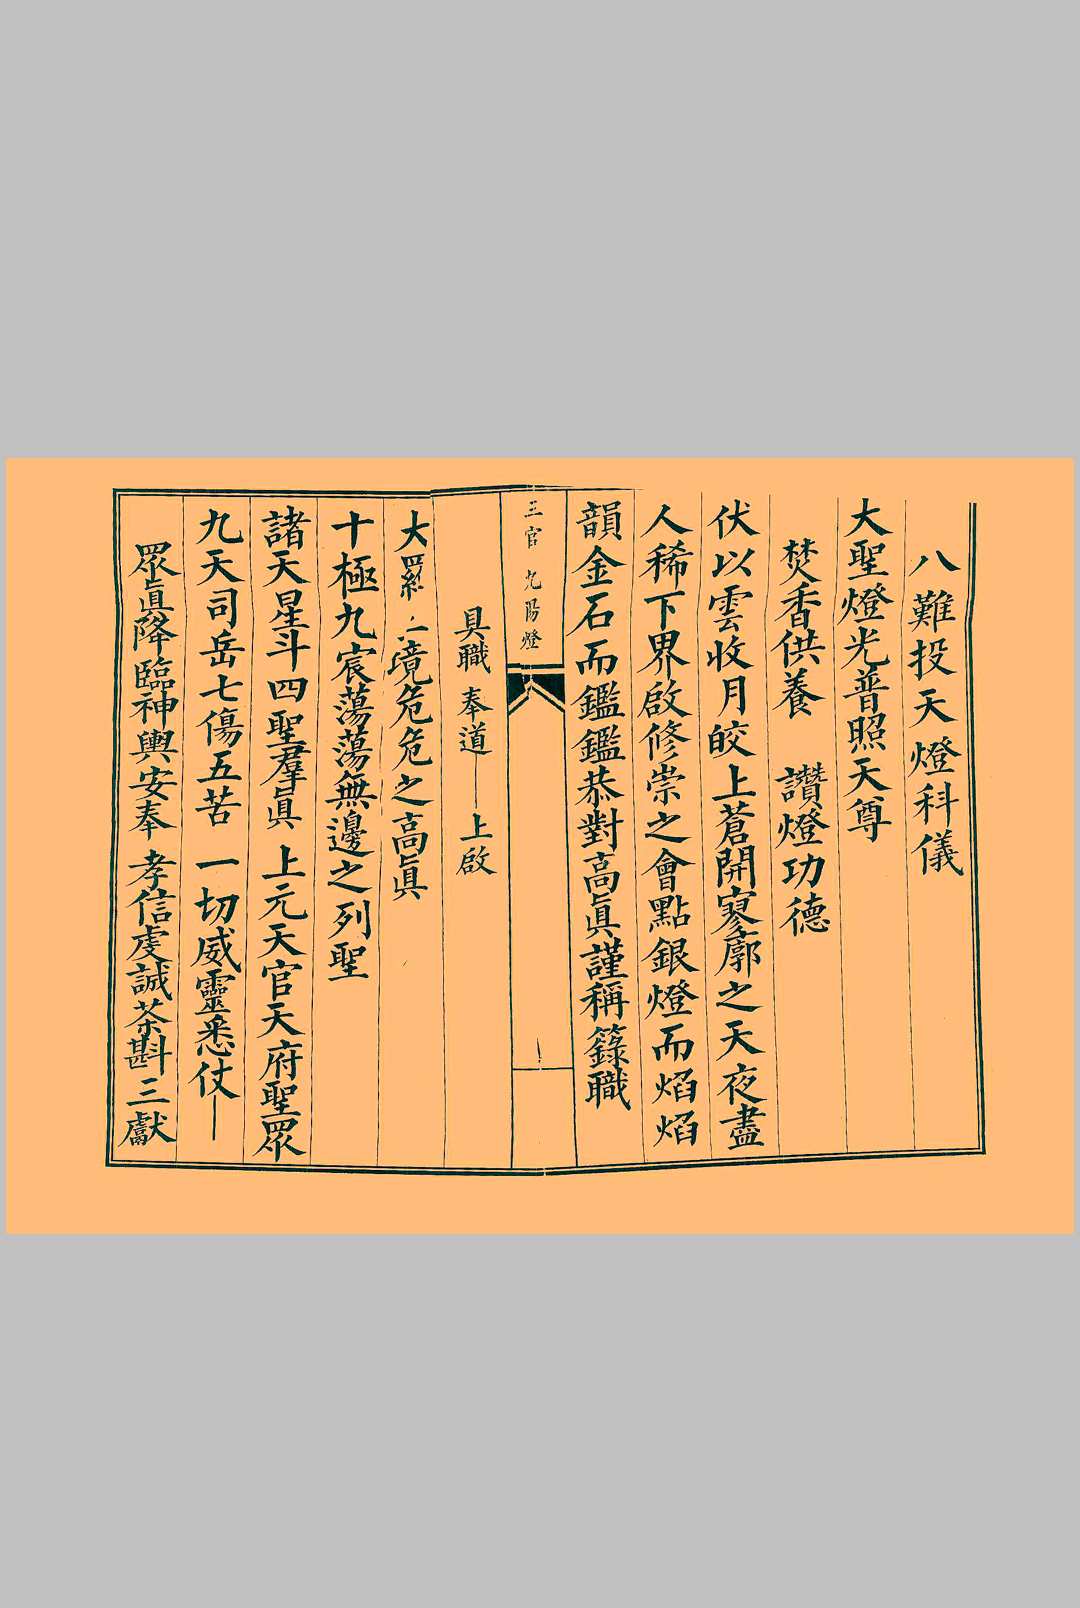 八難投天燈科儀
大聖燈光普照天尊
焚香供養　讚燈功德
伏以雲收月皎上蒼開寥廓之天夜盡
人稀下界啟修崇之會點銀燈而焰焰
韻金石而鑑鑑恭對高眞謹稱籙職
三官　九陽燈
具職　奉道——上啟
大羅三境危危之高眞
十極九宸蕩蕩無邊之列聖
諸天星斗四聖羣眞　上元天官天府聖眾
九天司岳七傷五苦　一切威靈悉仗——
眾眞降臨神輿安奉　孝信虔誠茶斟三獻